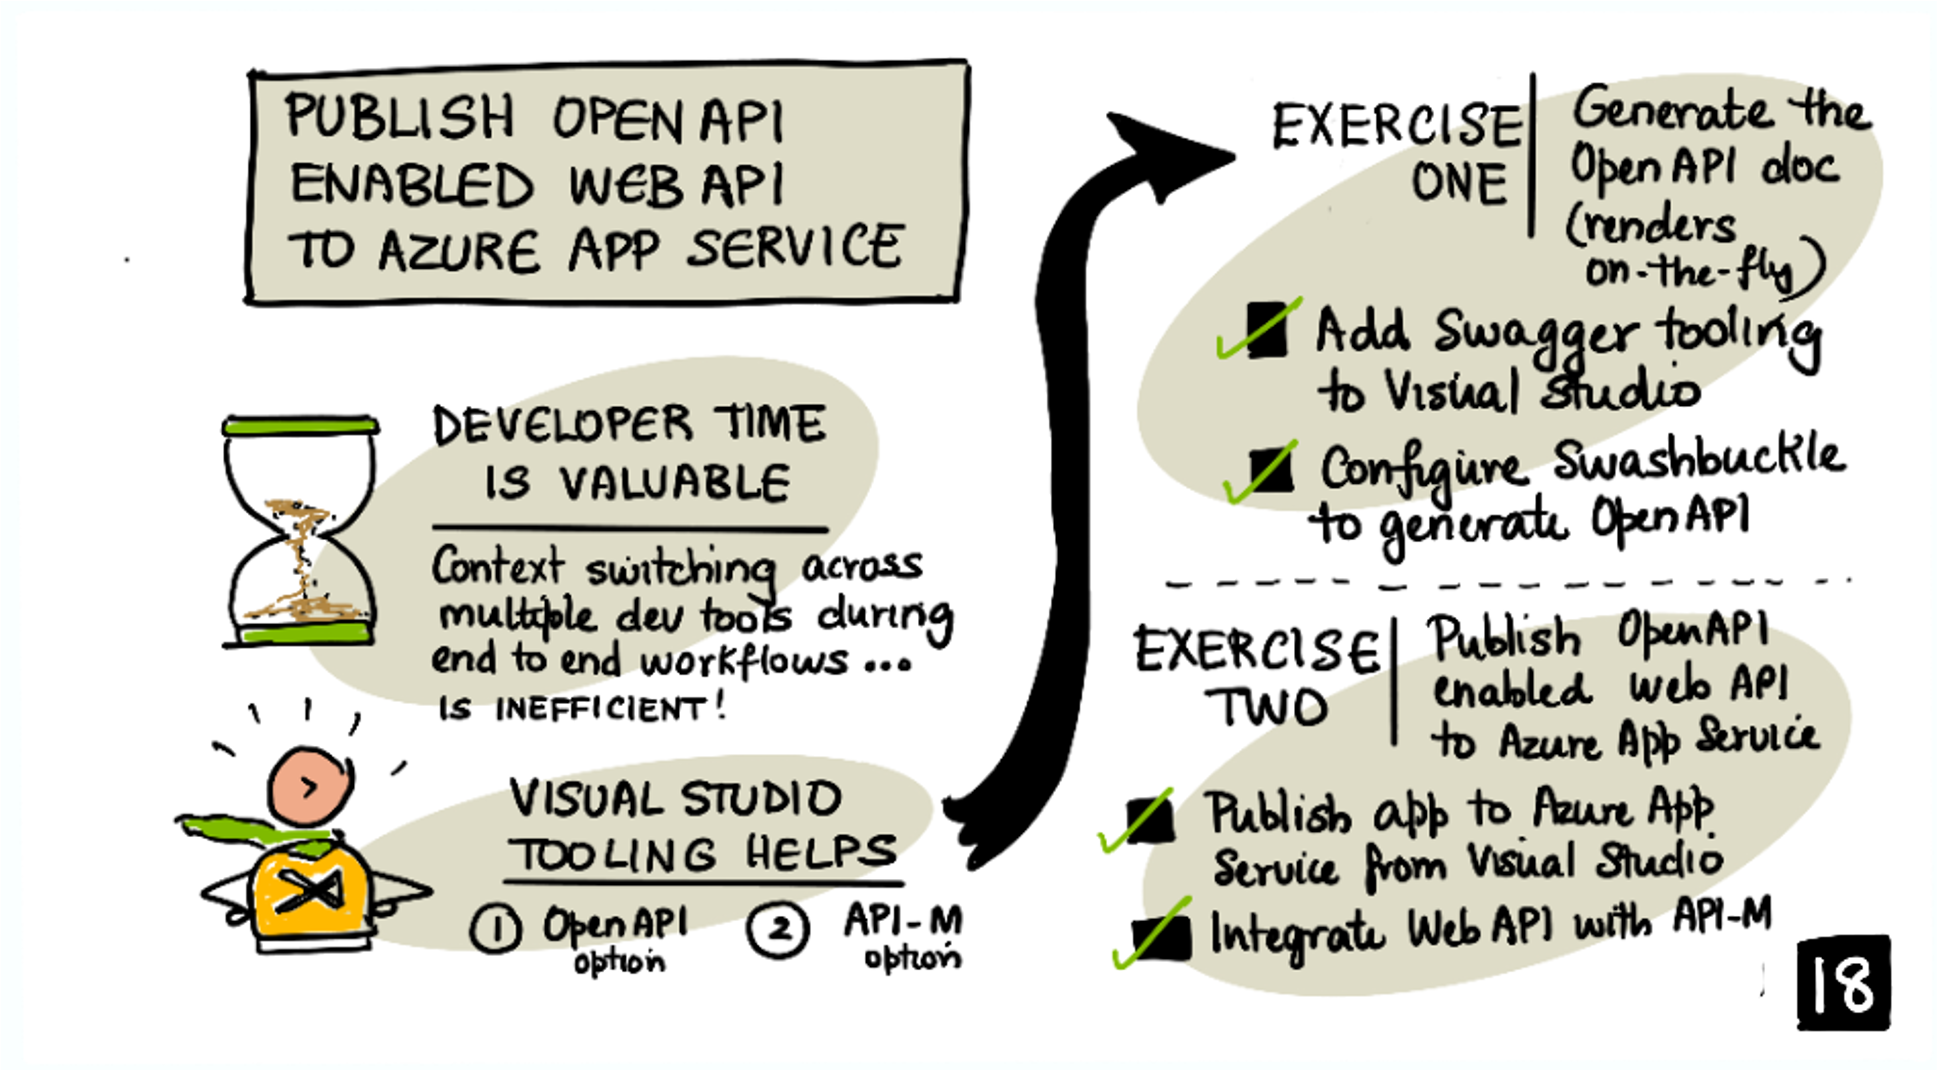 PUBLISH OPEN API
ENABLED WEB API
TO AZURE APP SERVICE
DEVELOPER TIME
IS VALUABLE
Context switching across
multiple dev tools during
end to end workflows ...
IS INEFFICIENT!
VISUAL STUDIO
TOOLING HELPS
1 Open API
option
2 API-M
option
EXERCISE
ONE
Generate the
Open API doc
(renders
on-the-fly)
Add Swagger tooling
to Visual Studio
Configure Swashbuckle
to generate Open API
EXERCISE
TWO
Publish OpenAPI
enabled web API
to Azure App Service
Publish app to Azure App
Service from Visual Studio
Integrate Web API with API-M
18